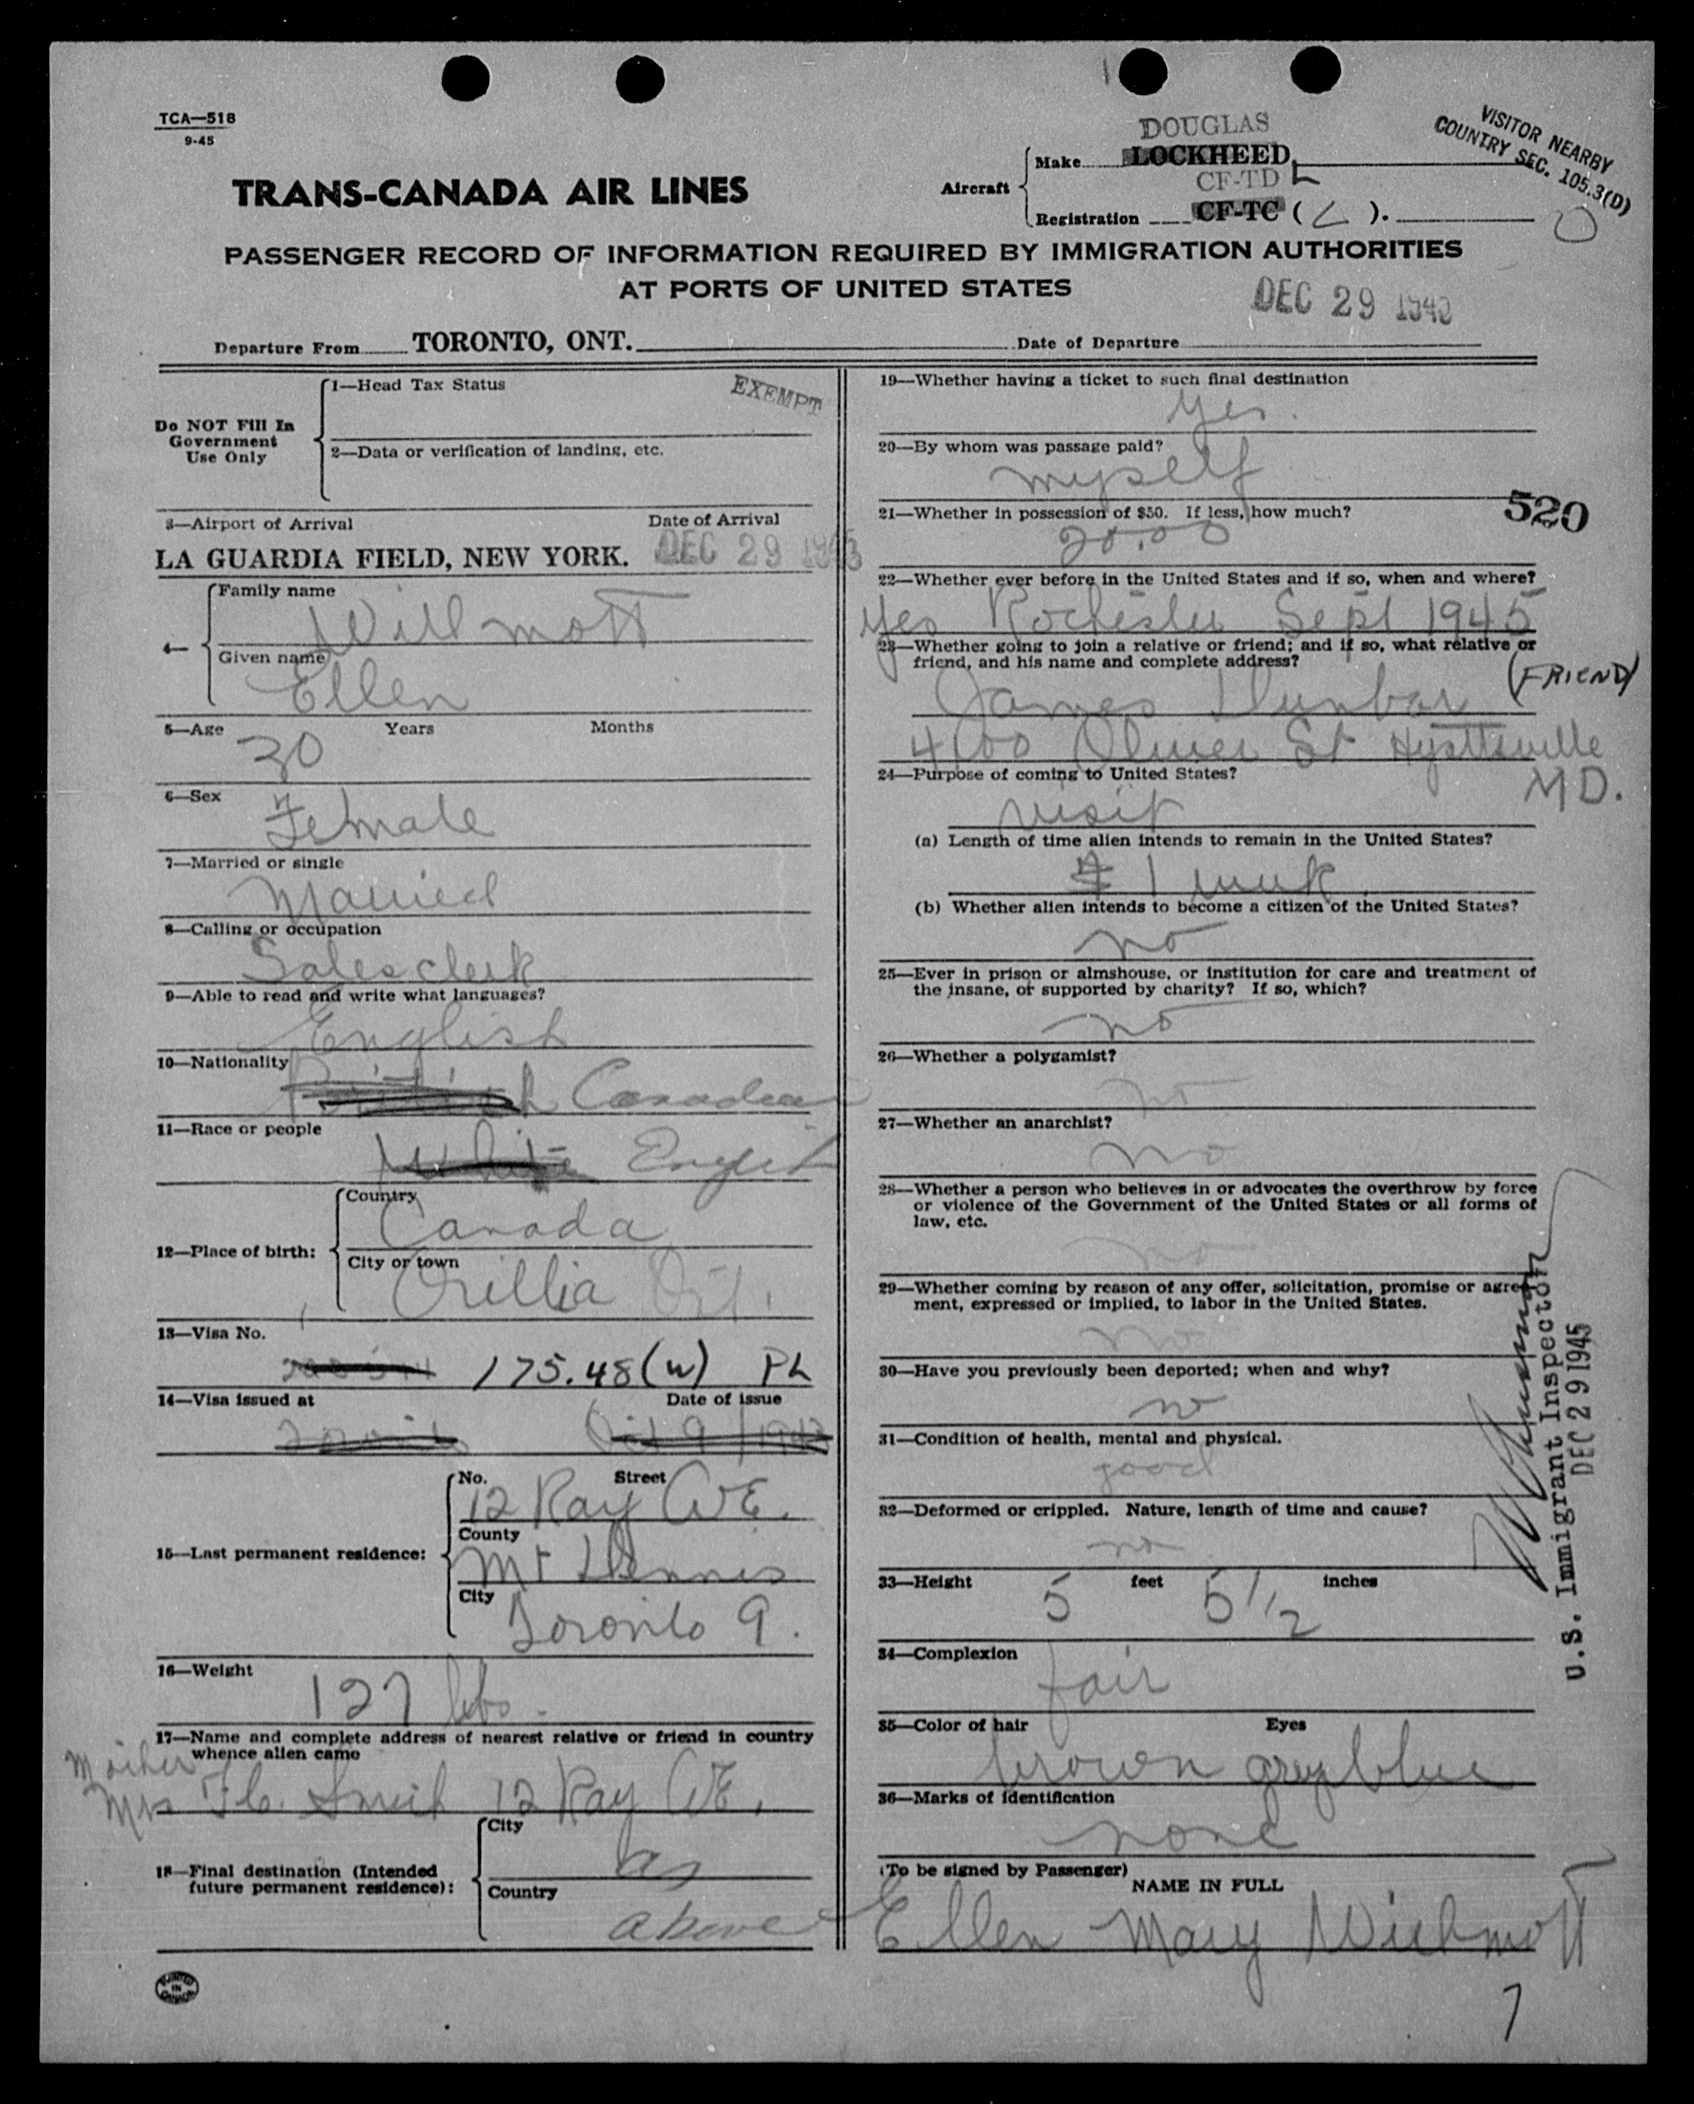 TCA—518
9-45
VISITOR NEARBY
COUNTRY SEC. 105.3(D)
DOUGLAS
Make LOCKHEED
TRANS-CANADA AIR LINES
Aircraft
CF-TD L
Registration CF-TC ( L ).
PASSENGER RECORD OF INFORMATION REQUIRED BY IMMIGRATION AUTHORITIES
AT PORTS OF UNITED STATES
DEC 29 1945
Departure From TORONTO, ONT. Date of Departure
Do NOT Fill In
Government
Use Only
1—Head Tax Status
EXEMPT
2—Data or verification of landing, etc.
3—Airport of Arrival Date of Arrival
LA GUARDIA FIELD, NEW YORK. DEC 29
4— Family name
Willmott
Given name
Ellen
5—Age Years Months
30
6—Sex
Female
7—Married or single
Married
8—Calling or occupation
Sales clerk
9—Able to read and write what languages?
English
10—Nationality
British Canadian
11—Race or people
White English
12—Place of birth:
Country
Canada
City or town
Orillia Ont.
13—Visa No.
175.48(w) PL
14—Visa issued at Date of issue
Oct 9
15—Last permanent residence:
No. Street
12 Ray AVE.
County
Mt Dennis
City
Toronto 9.
16—Weight
127 lbs.
17—Name and complete address of nearest relative or friend in country
whence alien came
Mother
Mrs Smith 12 Ray AVE.
18—Final destination (Intended
future permanent residence):
City
as
Country
above
PRINTED
IN
CANADA
19—Whether having a ticket to such final destination
Yes.
20—By whom was passage paid?
myself
21—Whether in possession of $50. If less, how much?
520
20.00
22—Whether ever before in the United States and if so, when and where?
Yes Rochester Sept 1945
23—Whether going to join a relative or friend; and if so, what relative or
friend, and his name and complete address?
(FRIEND)
James Dunbar
4100 Oliver St Hyattsville
MD.
24—Purpose of coming to United States?
visit
(a) Length of time alien intends to remain in the United States?
1 week
(b) Whether alien intends to become a citizen of the United States?
no
25—Ever in prison or almshouse, or institution for care and treatment of
the insane, or supported by charity? If so, which?
no
26—Whether a polygamist?
no
27—Whether an anarchist?
no
28—Whether a person who believes in or advocates the overthrow by force
or violence of the Government of the United States or all forms of
law, etc.
no
29—Whether coming by reason of any offer, solicitation, promise or agree-
ment, expressed or implied, to labor in the United States.
no
30—Have you previously been deported; when and why?
no
31—Condition of health, mental and physical.
good
32—Deformed or crippled. Nature, length of time and cause?
no
33—Height feet inches
5 5 1/2
34—Complexion
fair
35—Color of hair Eyes
brown grey blue
36—Marks of identification
none
(To be signed by Passenger)
NAME IN FULL
Ellen Mary Willmott
U.S. Immigrant Inspector
DEC 29 1945
7